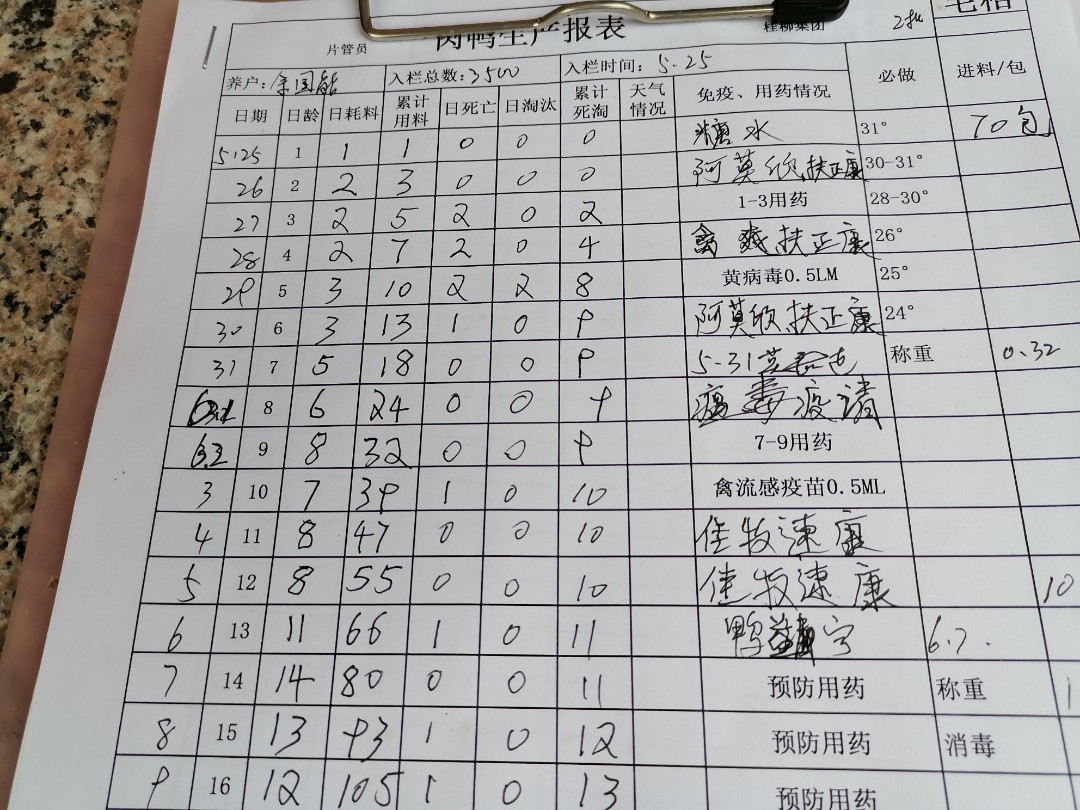 肉鸭生产报表
桂柳集团
片管员
养户: 余国能 入栏总数: 3500 入栏时间: 5.25 必做 进料/包
日期 日龄 日耗料 累计用料 日死亡 日淘汰 累计死淘 天气情况 免疫、用药情况
5.25 1 1 1 0 0 0 糖水 31° 70包
26 2 2 3 0 0 0 阿莫欣,扶正康 30-31°
27 3 2 5 2 0 2 1-3用药 28-30°
28 4 2 7 2 0 4 禽爽扶正康 26°
29 5 3 10 2 2 8 黄病毒0.5LM 25°
30 6 3 13 1 0 9 阿莫欣,扶正康 24°
31 7 5 18 0 0 9 5-31 称重 0.32
8 6 24 0 0 9 毒疫清
9 8 32 0 0 9 7-9用药
3 10 7 39 1 0 10 禽流感疫苗0.5ML
4 11 8 47 0 0 10 佳牧速康
5 12 8 55 0 0 10 佳牧速康 10
6 13 11 66 1 0 11 鸭 6.7.
7 14 14 80 0 0 11 预防用药 称重 1
8 15 13 93 1 0 12 预防用药 消毒
9 16 12 105 1 0 13 预防用药